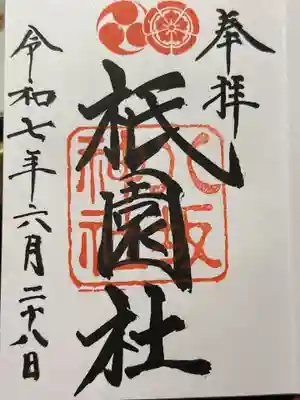 奉拝
祇園社
八坂神社
令和七年六月二十八日